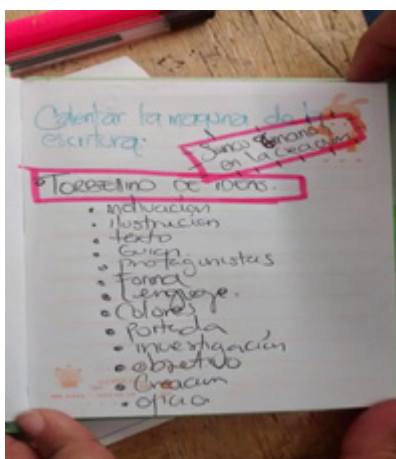 Calentar la maquina de la
escritura:
en la creación
•Torbellino de ideas.
• motivación
• ilustracion
• texto
• Guion
• protagonistas
• Forma
• Lenguaje.
• Colores
• portada
• investigación
• objetivo
• Creacion
• oficio